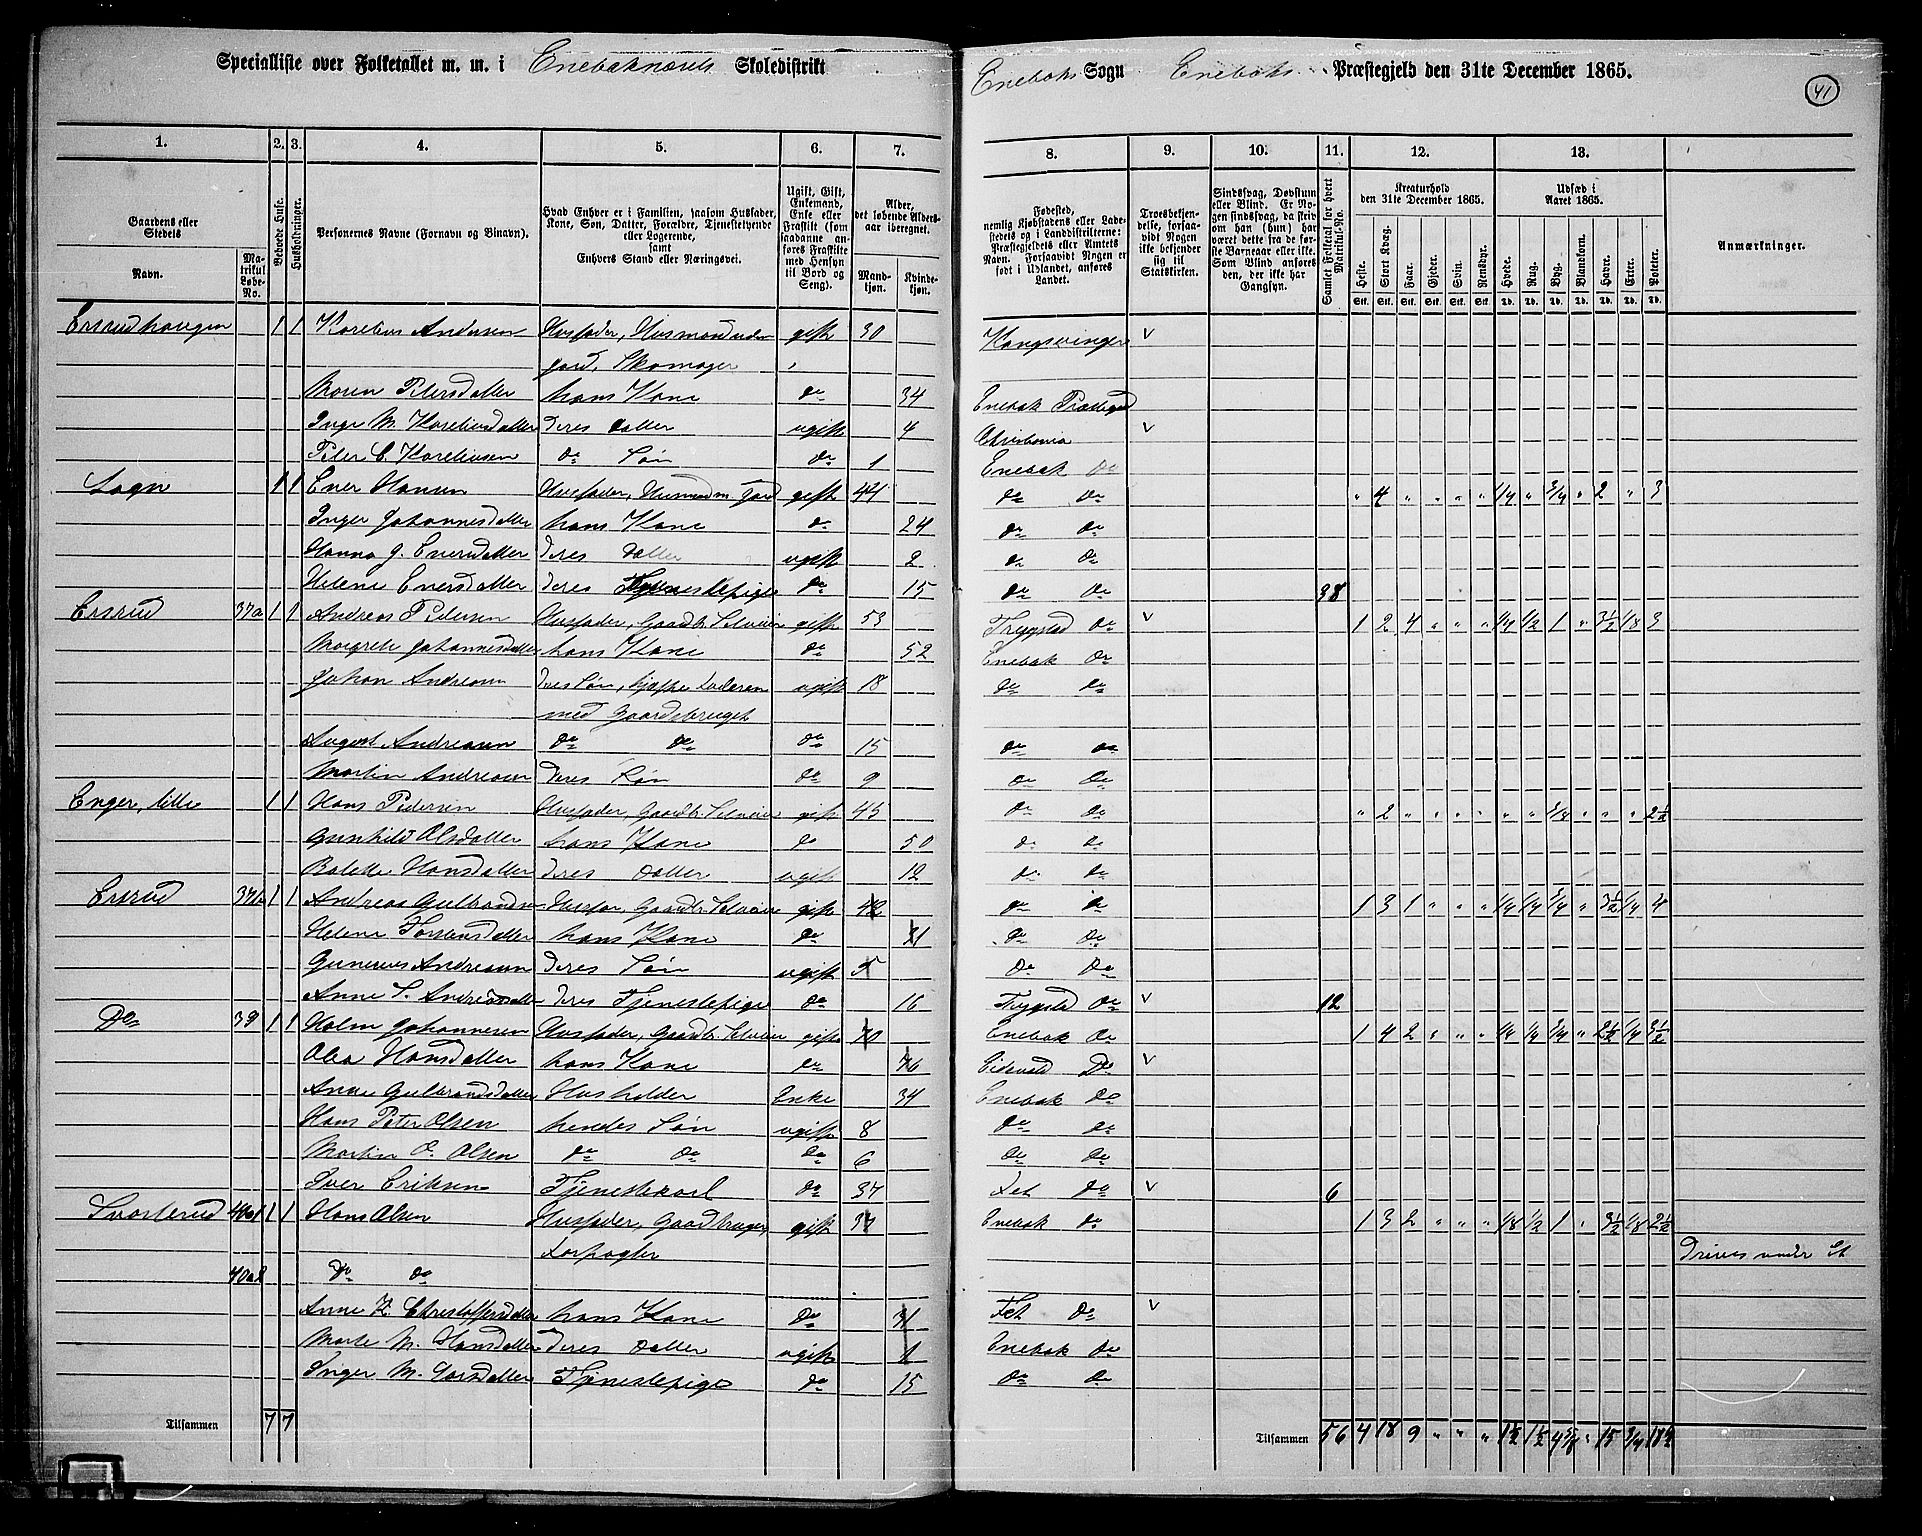 Specialliste over Folketallet m. m. i Enebaknæsets Skoledistrikt Enebaks Sogn Enebaks Præstegjeld den 31te December 1865.
41
1. 2. 3. 4. 5. 6. 7. 8. 9. 10. 11. 12. 13.
Gaardens eller Stedets Navn. Matrikul Løbe-No.
Beboede Huse.
Husholdninger.
Personernes Navne (Fornavn og Binavn).
Hvad Enhver er i Familien, saasom Husfader, Kone, Søn, Datter, Forældre, Tjenestetyende eller Logerende, samt Enhvers Stand eller Næringsvei.
Ugift, Gift, Enkemand, Enke eller Fraskilt (som saadanne anføres Fraskilte med Hensyn til Bord og Seng).
Alder, det løbende Aldersaar iberegnet. Mandkjøn. Kvindekjøn.
Fødested, nemlig Kjøbstadens eller Ladestedets og i Landdistrikterne: Præstegjeldets eller Amtets Navn. Forsaavidt Nogen er født i Udlandet, anføres Landet.
Troesbekjendelse, forsaavidt Nogen ikke bekjender sig til Statskirken.
Sindssvag, Døvstum eller Blind. Er Nogen sindssvag, da skriv om han (hun) har været dette fra de første Barneaar eller ikke. Som Blind anføres den, der ikke har Gangsyn.
Samlet Folketal for hvert Matrikul-No.
Kreaturhold den 31te December 1865. Heste. Stort Kvæg. Faar. Gjeder. Svin. Rensdyr.
Udsæd i Aaret 1865. Hvede. Rug. Byg. Blandkorn. Havre. Erter. Poteter.
Anmærkninger.
Ersrudhaugen 1 1 Karelius Andersen Husfader, Husmand uden gift 30 Kongsvinger v
Jord, Skomager
Maren Petersdatter hans Kone do 34 Enebak Præstegd
Inge M. Kareliusdatter deres Datter ugift 4 Christiania v
Peter C. Kareliusen do Søn do 1 Enebak do
Løgn 1 1 Ener Hansen Husfader, Husmand m. Jord gift 44 do do " 4 " " " " 1/4 " 3/4 " 2 " 3
Inger Johannesdatter hans Kone do 24 do do
Hanna J. Enersdatter deres Datter ugift 2 do do
Helene Enersdatter deres Tjenestepige do 15 do do 38
Ersrud 37a 1 1 Andreas Pedersen Husfader, Gaardb. Selveier gift 53 Trygstad do v 1 2 4 " " " 1/4 1/2 1 " 3 1/2 1/8 3
Margrete Johannesdatter hans Kone do 52 Enebak do
Johan Andreasen deres Søn, hjælper Faderen ugift 18 do do
med Gaardsbruget
August Andreasen do do do 15 do do
Martin Andreasen deres Søn do 9 do do
Enger, lille 1 1 Hans Pedersen Husfader, Gaardb. Selveier gift 45 do do " 2 " " " " " " 3/4 " " " 2 1/2
Gunhild Olsdatter hans Kone do 50 do do
Bolette Hansdatter deres Datter ugift 12 do do
Ersrud 37b 1 1 Andreas Gulbrandsen Husfar, Gaardb. Selveier gift 42 do do 1 3 1 " " " 1/4 1/4 3/4 " 3 1/2 1/4 4
Helene Torstensdatter hans Kone do 41 do do
Gunerius Andreasen deres Søn ugift 5 do do
Anne S. Andreasdatter deres Tjenestepige do 16 Trygstad do v 12
Do 39 1 1 Holm Johannesen Husfader, Gaardb. Selveier gift 70 Enebak do 1 4 2 " " " 1/4 1/4 3/4 " 2 1/2 1/4 3 1/2
Olea Hansdatter hans Kone do 76 Eidsvold do v
Anne Gulbrandsdatter Husholder Enke 34 Enebak do
Hans Peter Olsen hendes Søn ugift 8 do do
Martin O. Olsen do do do 6 do do
Iver Eriksen Tjenestekarl do 37 Fet do v 6
Svarterud 40a1 1 1 Hans Olsen Husfader, Gaardbruger, gift 37 Enebak do 1 3 2 " " " 1/8 1/2 1 " 3 1/2 1/8 2 1/2
Forpagter
40a2 do do Drives under Et
Anne K. Christoffersdatter hans Kone do 31 Fet do v
Marte M. Hansdatter deres Datter ugift 1 Enebak do
Inger M. Larsdatter Tjenestepige do 15 do do
Tilsammen 7 7 Tilsammen 56 4 18 9 " " " 1 1/2 1 1/2 4 5/8 " 15 3/4 18 1/2